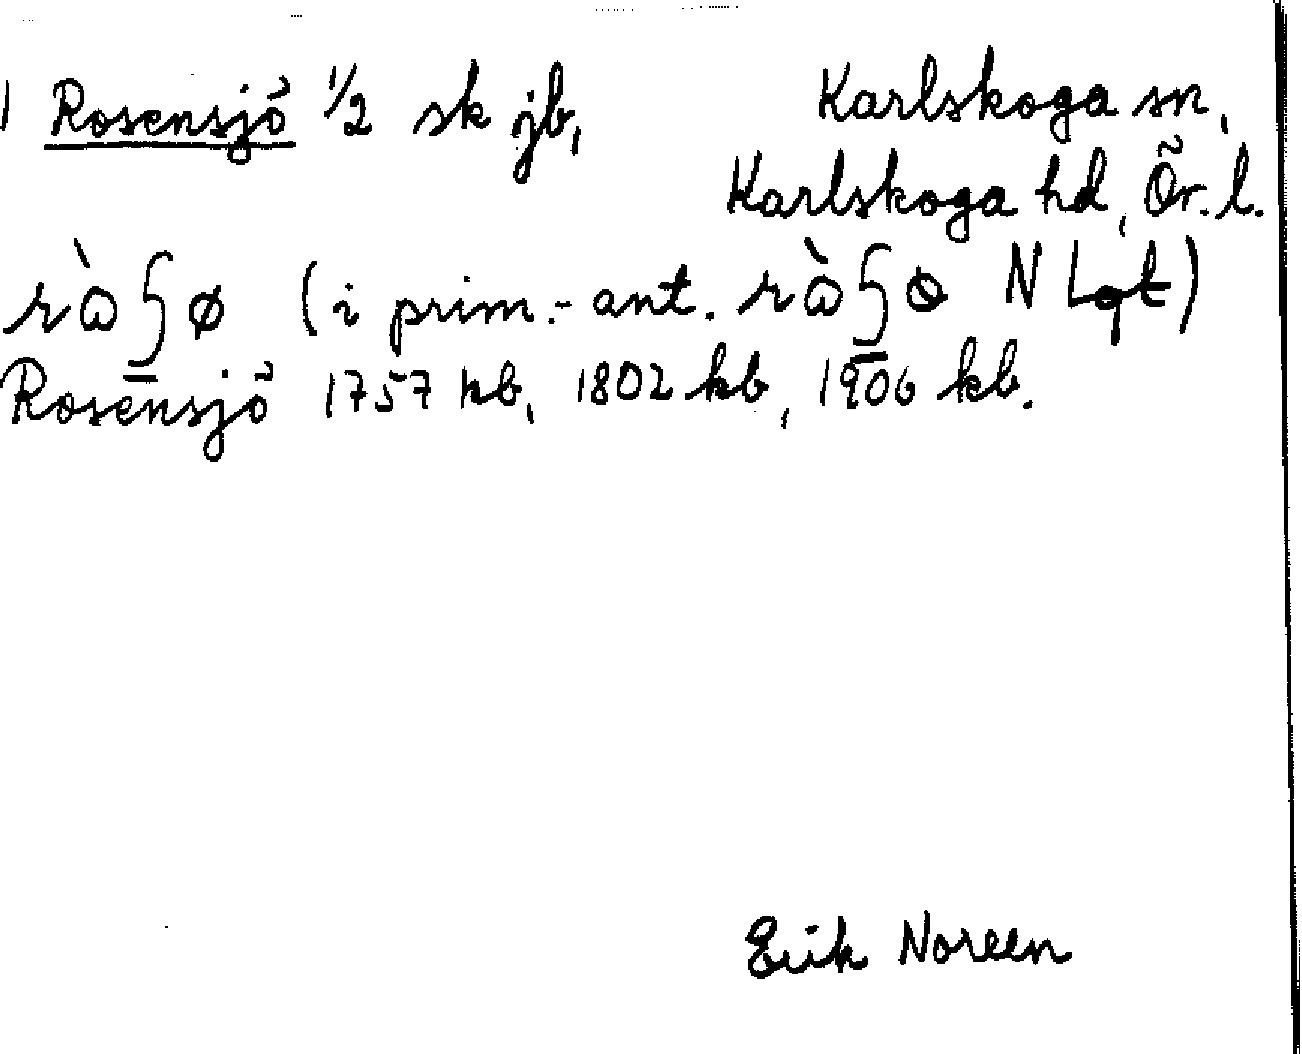 Rosensjö 1/2 sk jb,
Karlskoga sn,
Karlskoga hd, Ör. l.
(i prim.-ant. N
Rosensjö 1757 kb, 1802 kb, 1906 kb.
Erik Noreen